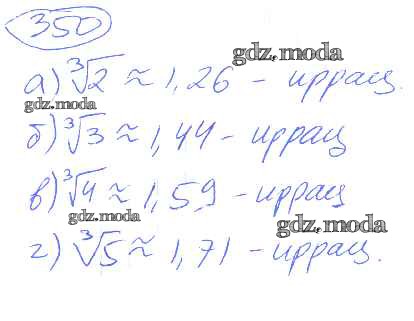 350
gdz.moda
а) ∛2 ≈ 1,26 - иррац.
gdz.moda
б) ∛3 ≈ 1,44 - иррац
в) ∛4 ≈ 1,59 - иррац
gdz.moda
gdz.moda
г) ∛5 ≈ 1,71 - иррац.